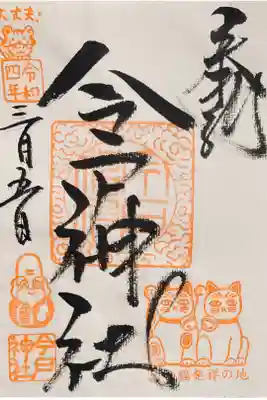 奉拝
今戸神社
大丈夫!
令和
四年
三月五日
今戸
神社
猫発祥の地